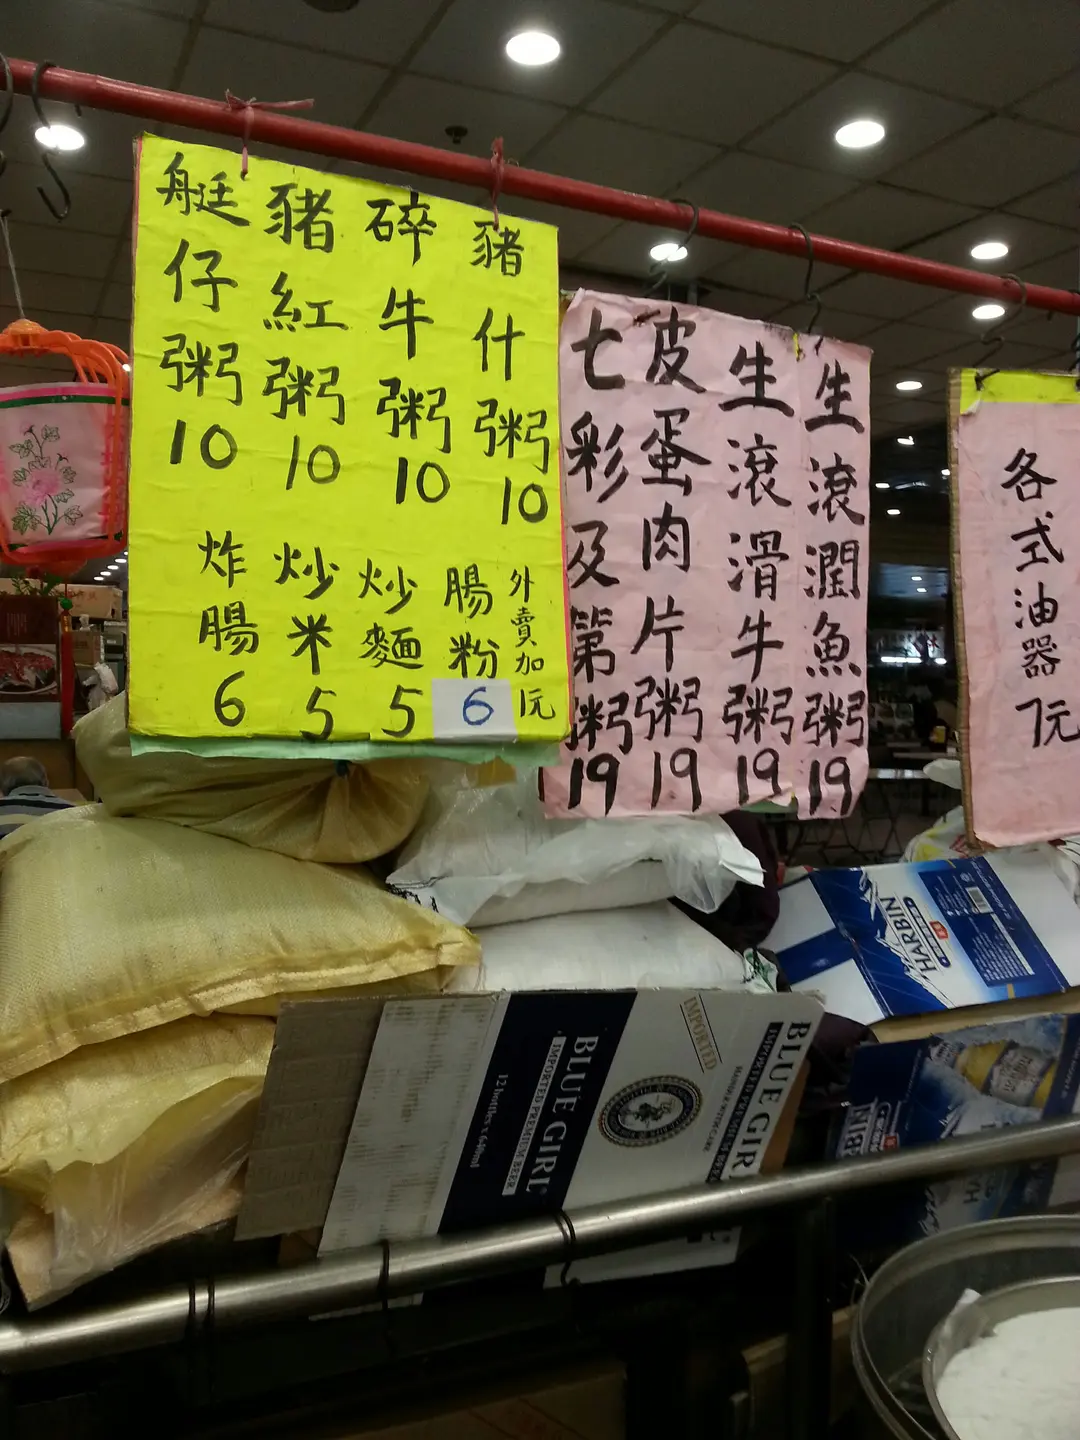 艇仔粥10
豬紅粥10
碎牛粥10
豬什粥10
炸腸6
炒米5
炒麵5
腸粉6
外賣加1元
七彩及第粥19
皮蛋肉片粥19
生滾滑牛粥19
生滾潤魚粥19
各式油器7元
HARBIN
BLUE GIRL
IMPORTED PREMIUM BEER
12 bottles 640ml
IMPORTED
HANDLE WITH CARE
BLUE GIRL
IMPORTED PREMIUM BEER